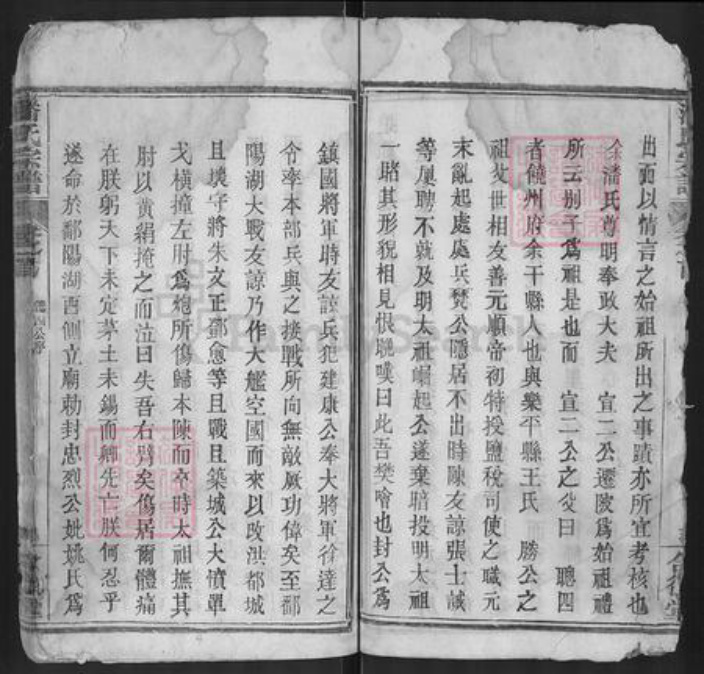 出而以情言之始祖所出之事蹟亦所宜考核也
余潘氏尊明奉政大夫 宣二公遷陵爲始祖禮
所云别子爲祖是也而 宣二公之父曰 聰四
者饒州府余干縣人也與樂平縣王氏 勝公之
祖父世相友善元順帝初特授鹽稅司使之職元
末亂起處處兵燹公隱居不出時陳友諒張士誠
等屢聘不就及明太祖崛起公遂棄暗投明太祖
一睹其形貌相見恨晚嘆曰此吾樊噲也封公爲
鎮國將軍時友諒兵犯建康公奉大將軍徐達之
令率本部兵與之接戰所向無敵厥功偉矣至鄱
陽湖大戰友諒乃作大艦空國而來以攻洪都城
且壞守將朱文正鄧愈等且戰且築城公大憤單
戈橫撞左肘爲炮所傷歸本陳而卒時太祖撫其
肘以黄絹掩之而泣曰失吾右臂矣傷居爾體痛
在朕躬天下未定茅土未錫而卿先亡朕何忍乎
遂命於鄱陽湖西側立廟勅封忠烈公妣姚氏爲
潘氏宗譜
FamilySearch